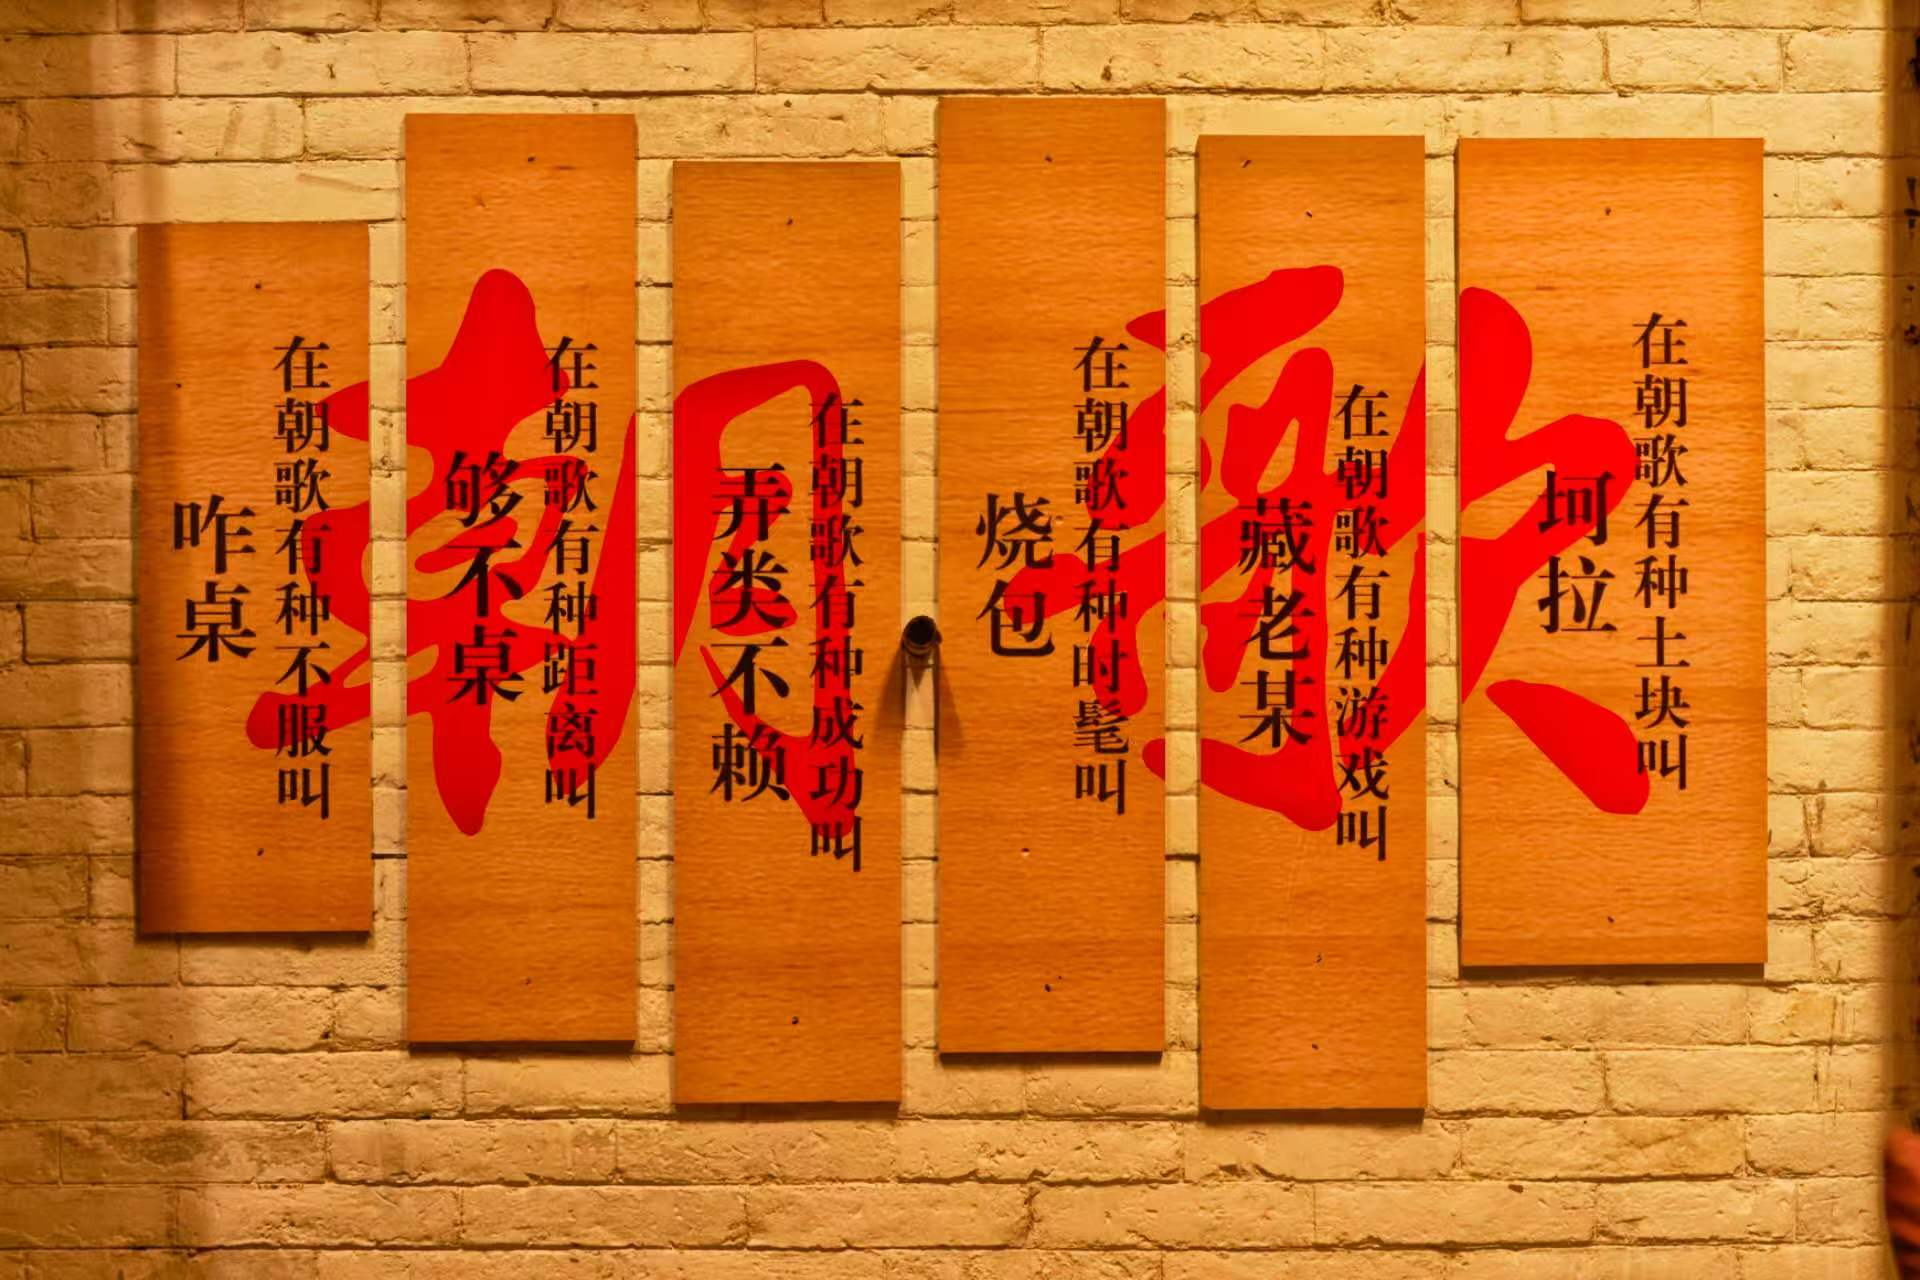 朝歌
在朝歌有种不服叫
咋桌
在朝歌有种距离叫
够不桌
在朝歌有种成功叫
弄类不赖
在朝歌有种时髦叫
烧包
在朝歌有种游戏叫
藏老某
在朝歌有种土块叫
坷垃